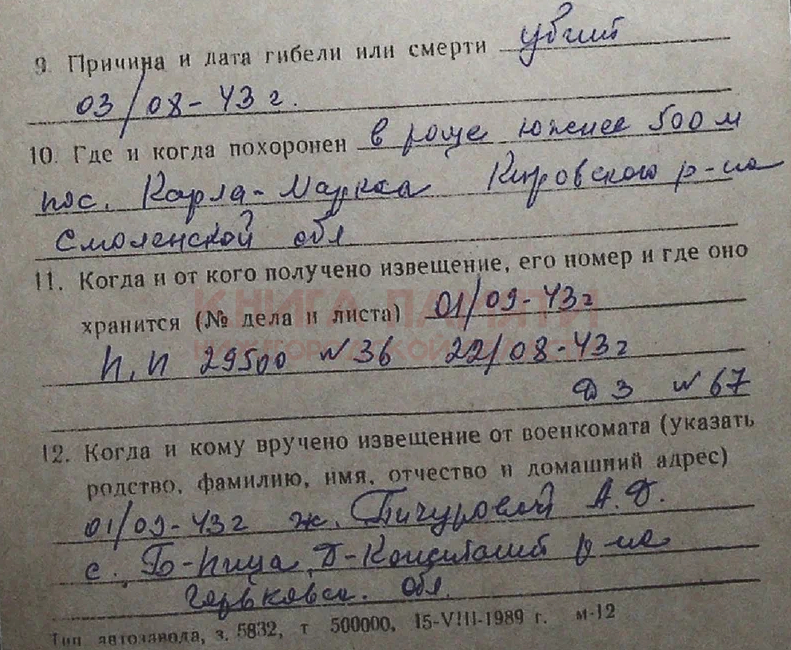 9. Причина и дата гибели или смерти убит
03/08-43 г.
10. Где и когда похоронен в роще южнее 500 м
пос. Карла-Маркса Кировского р-на
Смоленской обл
11. Когда и от кого получено извещение, его номер и где оно
КНИГА ПАМЯТИ
хранится (№ дела и листа) 01/09-43г
п.п 29500 № 36 22/08-43г
Д 3 № 67
12. Когда и кому вручено извещение от военкомата (указать
родство, фамилию, имя, отчество и домашний адрес)
01/09-43г ж. Пичуровой А.Д.
с. Б-Пица Д-Константин р-на
Горьковск. обл.
Тип. автозавода, з. 5832, т 500000, 15-VIII-1989 г. м-12